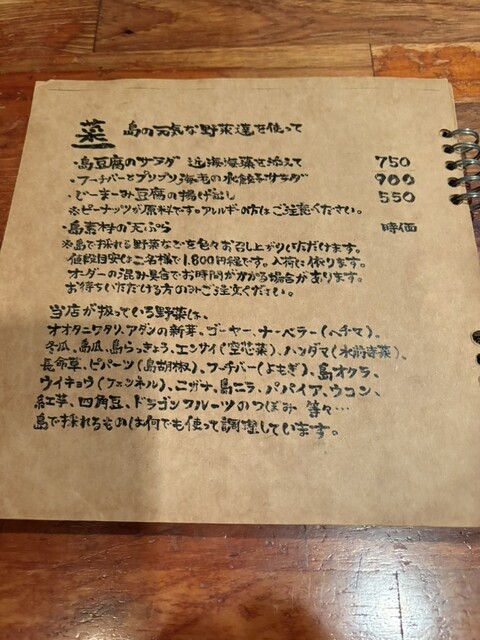 菜 島の元気な野菜達を使って
・島豆腐のサラダ 近海海藻を添えて 750
・フーチバーとプリプリ海老の水餃子サラダ 900
・じーまーみ豆腐の揚げ出し 550
※ピーナッツが原料です。アレルギーの方はご注意ください。
・島素材の天ぷら 時価
※島で採れる野菜などを色々お召し上がりいただけます。
値段目安は二名様で1,800円程です。入荷に依ります。
オーダーの混み具合でお時間がかかる場合があります。
お待ちいただける方のみご注文ください。
当店が扱っている野菜は、
オオタニワタリ、アダンの新芽、ゴーヤー、ナーベラー(ヘチマ)、
冬瓜、島瓜、島らっきょう、エンサイ(空芯菜)、ハンダマ(水前寺菜)、
長命草、ピパーツ(島胡椒)、フーチバー(よもぎ)、島オクラ、
ウイキョウ(フェンネル)、ニガナ、島ニラ、パパイア、ウコン、
紅芋、四角豆、ドラゴンフルーツのつぼみ 等々…
島で採れるものは何でも使って調理しています。